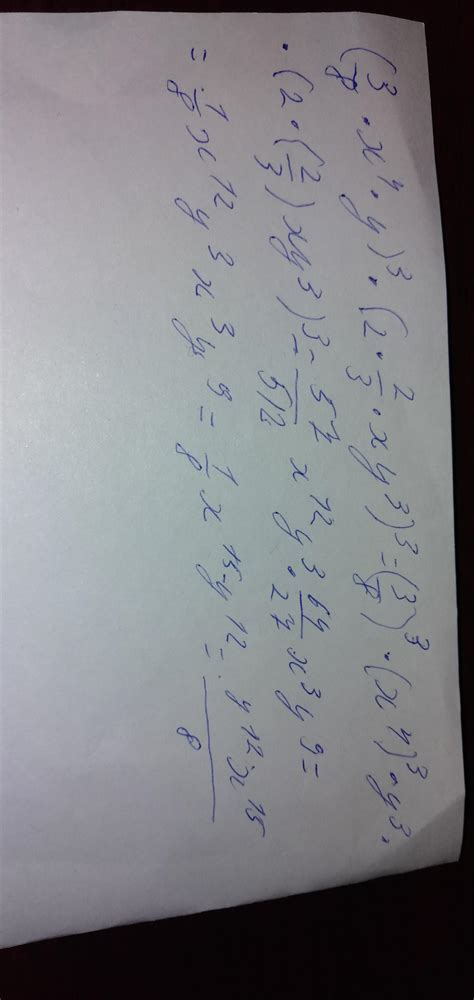 (3/8 · x⁴ · y)³ · (2 · 2/3 · xy³)³ = (3/8)³ · (x⁴)³ · y³ ·
· (2 · (2/3) xy³)³ = 27/512 x¹² y³ · 64/27 x³ y⁹ =
= 1/8 x¹² y³ x³ y⁹ = 1/8 x¹⁵ y¹² = y¹² x¹⁵/8